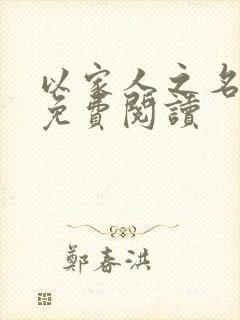 以家人之名
免費閱讀
鄭春洪